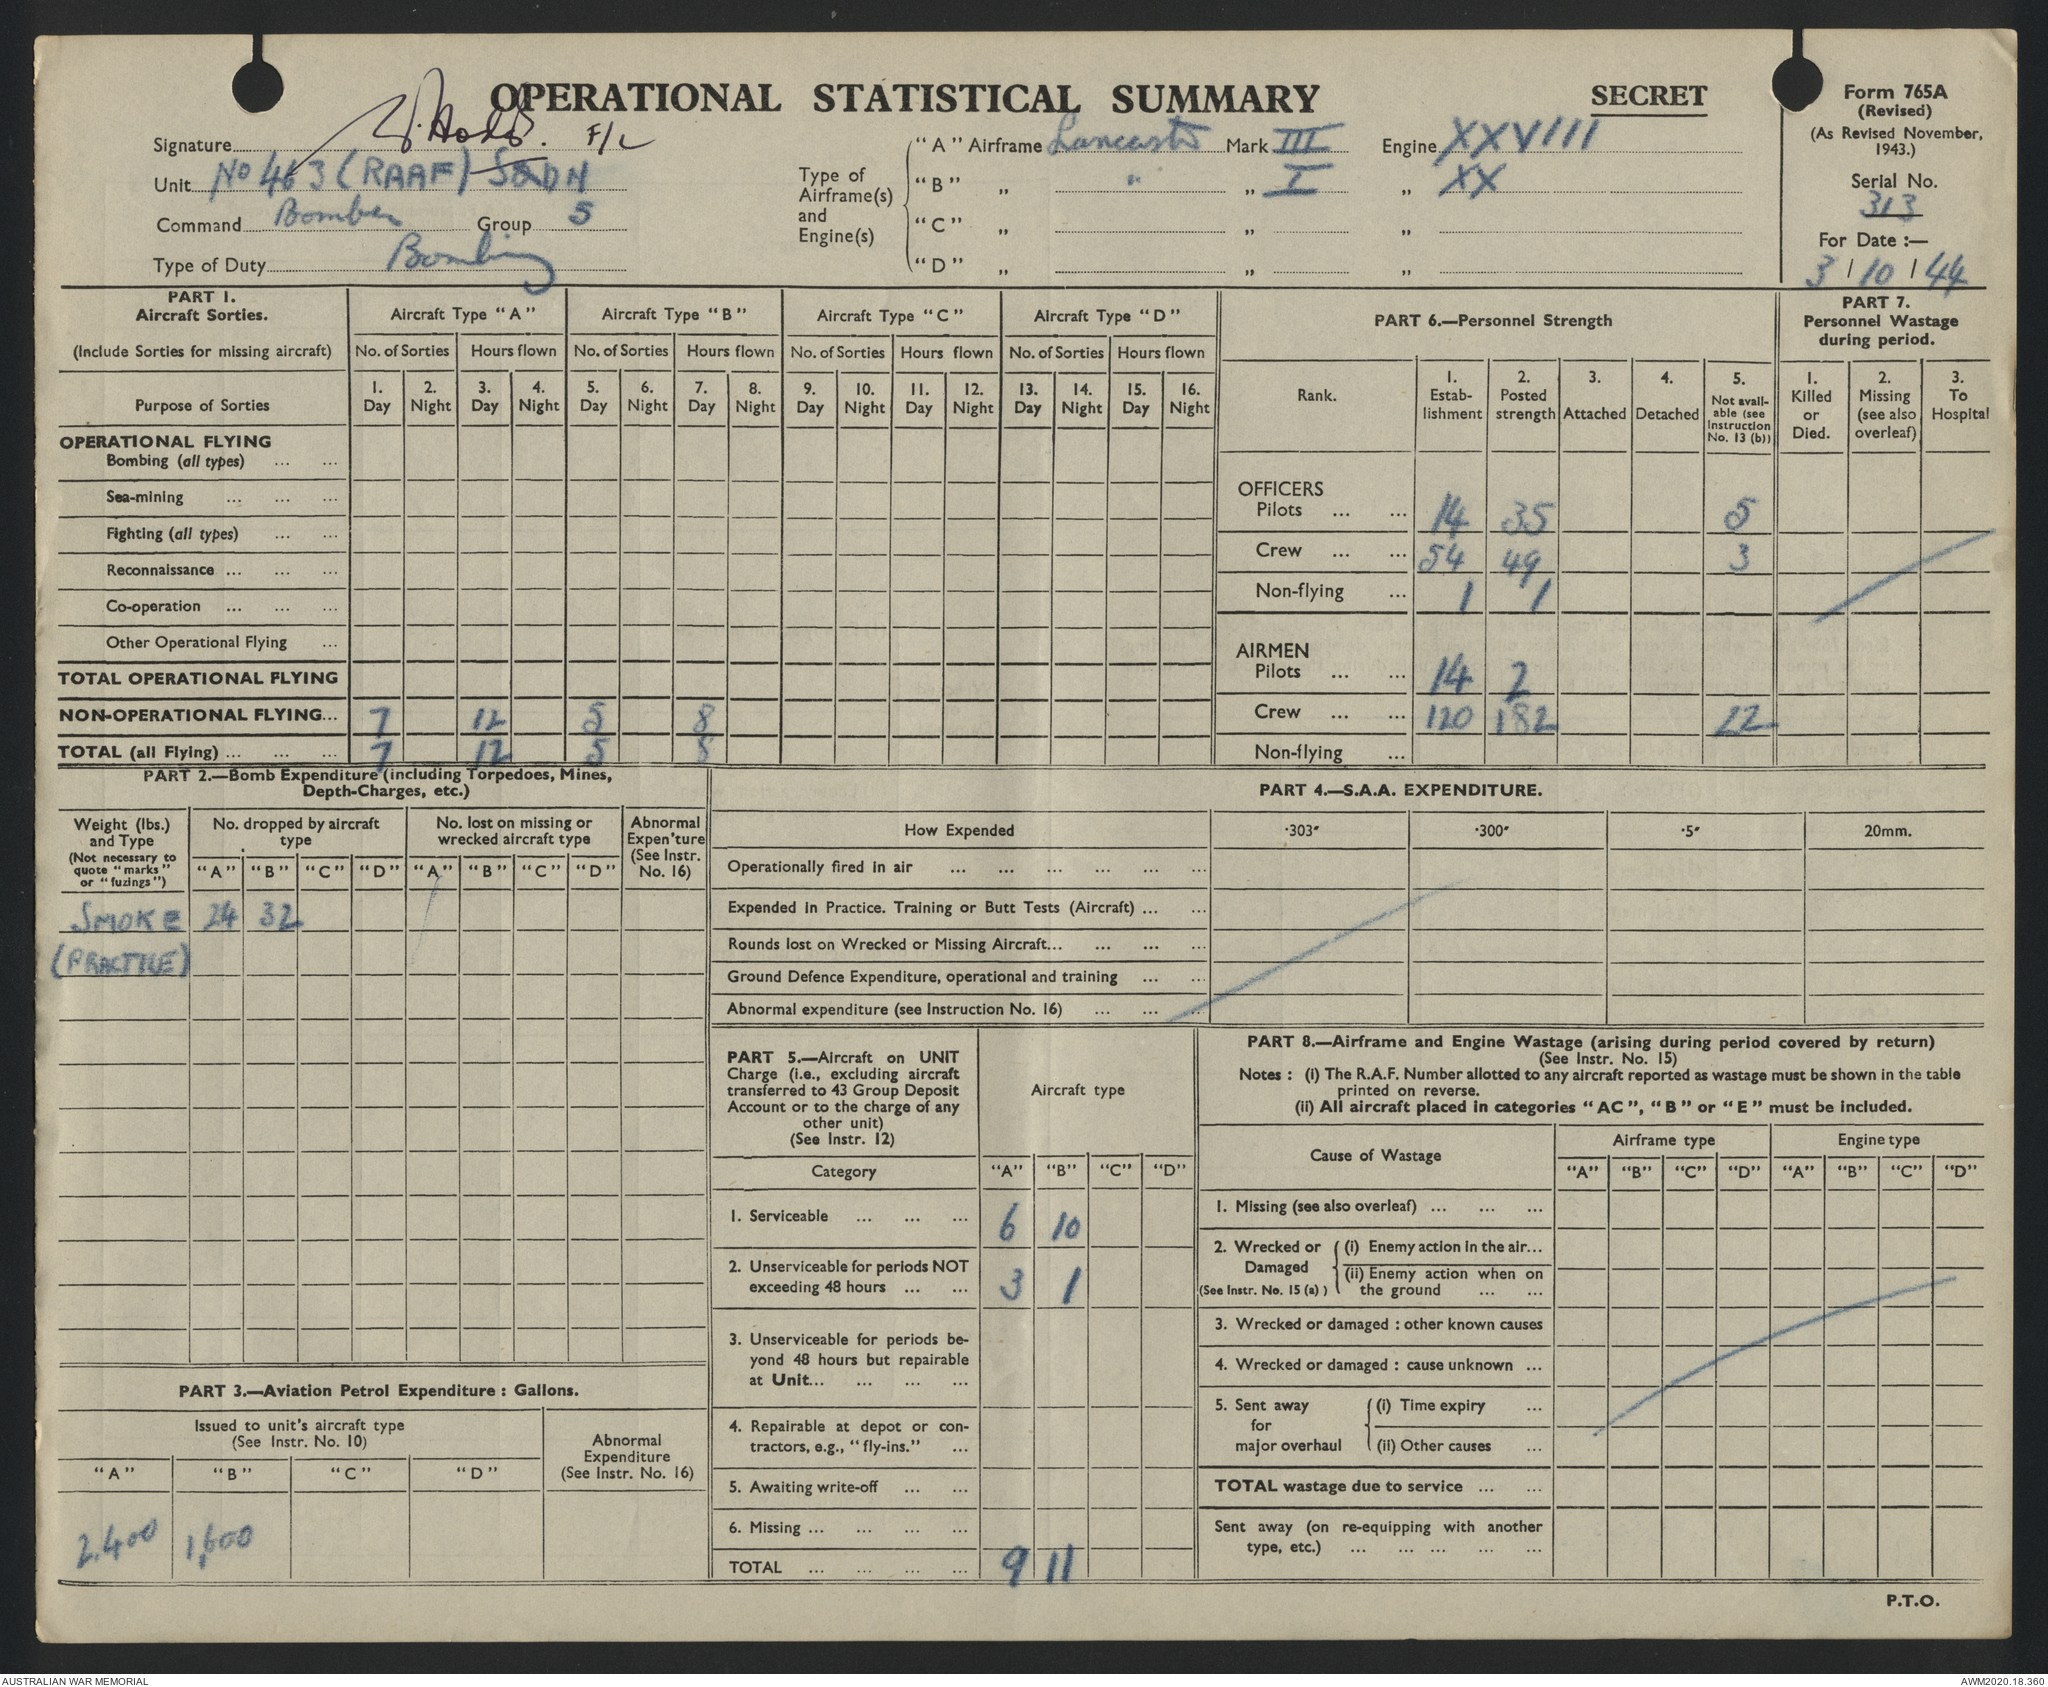 OPERATIONAL STATISTICAL SUMMARY
SECRET
Form 765A
(Revised)
(As Revised November,
1943.)
Serial No.
313
For Date :—
3 / 10 / 44
Signature F/L
Unit No 463 (RAAF) SQDN
Command Bomber Group 5
Type of Duty Bombing
Type of
Airframe(s)
and
Engine(s)
"A" Airframe Lancaster Mark III Engine XXVIII
"B" „ " „ I „ XX
"C" „ „ „
"D" „ „ „
PART 1.
Aircraft Sorties.
(Include Sorties for missing aircraft)
Purpose of Sorties
Aircraft Type "A" Aircraft Type "B" Aircraft Type "C" Aircraft Type "D"
No. of Sorties Hours flown No. of Sorties Hours flown No. of Sorties Hours flown No. of Sorties Hours flown
1. 2. 3. 4. 5. 6. 7. 8. 9. 10. 11. 12. 13. 14. 15. 16.
Day Night Day Night Day Night Day Night Day Night Day Night Day Night Day Night
OPERATIONAL FLYING
Bombing (all types) ... ...
Sea-mining ... ... ...
Fighting (all types) ... ...
Reconnaissance ... ... ...
Co-operation ... ... ...
Other Operational Flying ...
TOTAL OPERATIONAL FLYING
NON-OPERATIONAL FLYING... 7 12 5 8
TOTAL (all Flying) ... ... ... 7 12 5 8
PART 6.—Personnel Strength
Rank.
1. Estab-lishment
2. Posted strength
3. Attached
4. Detached
5. Not avail-able (see Instruction No. 13 (b))
OFFICERS
Pilots ... ... 14 35 5
Crew ... ... 54 49 3
Non-flying ... 1 1
AIRMEN
Pilots ... ... 14 2
Crew ... ... 120 182 22
Non-flying ...
PART 7.
Personnel Wastage
during period.
1. Killed or Died.
2. Missing (see also overleaf)
3. To Hospital
PART 2.—Bomb Expenditure (including Torpedoes, Mines,
Depth-Charges, etc.)
Weight (lbs.)
and Type
(Not necessary to
quote "marks"
or "fuzings")
No. dropped by aircraft
type
No. lost on missing or
wrecked aircraft type
Abnormal
Expen'ture
(See Instr.
No. 16)
"A" "B" "C" "D" "A" "B" "C" "D"
SMOKE 24 32
(PRACTICE)
PART 4.—S.A.A. EXPENDITURE.
How Expended ·303" ·300" ·5" 20mm.
Operationally fired in air ... ... ... ... ... ...
Expended in Practice. Training or Butt Tests (Aircraft) ... ...
Rounds lost on Wrecked or Missing Aircraft... ... ... ...
Ground Defence Expenditure, operational and training ... ...
Abnormal expenditure (see Instruction No. 16) ... ... ...
PART 3.—Aviation Petrol Expenditure : Gallons.
Issued to unit's aircraft type
(See Instr. No. 10)
Abnormal
Expenditure
(See Instr. No. 16)
"A" "B" "C" "D"
2,400 1,600
PART 5.—Aircraft on UNIT
Charge (i.e., excluding aircraft
transferred to 43 Group Deposit
Account or to the charge of any
other unit)
(See Instr. 12)
Aircraft type
Category "A" "B" "C" "D"
1. Serviceable ... ... ... 6 10
2. Unserviceable for periods NOT
exceeding 48 hours ... ... 3 1
3. Unserviceable for periods be-
yond 48 hours but repairable
at Unit... ... ... ...
4. Repairable at depot or con-
tractors, e.g., "fly-ins." ...
5. Awaiting write-off ... ...
6. Missing ... ... ... ...
TOTAL ... ... ... ... 9 11
PART 8.—Airframe and Engine Wastage (arising during period covered by return)
(See Instr. No. 15)
Notes : (i) The R.A.F. Number allotted to any aircraft reported as wastage must be shown in the table
printed on reverse.
(ii) All aircraft placed in categories "AC", "B" or "E" must be included.
Cause of Wastage Airframe type Engine type
"A" "B" "C" "D" "A" "B" "C" "D"
1. Missing (see also overleaf) ... ... ...
2. Wrecked or Damaged (See Instr. No. 15 (a) )
(i) Enemy action in the air...
(ii) Enemy action when on
the ground ... ...
3. Wrecked or damaged : other known causes
4. Wrecked or damaged : cause unknown ...
5. Sent away for major overhaul
(i) Time expiry ...
(ii) Other causes ...
TOTAL wastage due to service ... ...
Sent away (on re-equipping with another
type, etc.) ... ... ... ... ...
P.T.O.
AUSTRALIAN WAR MEMORIAL
AWM2020.18.360